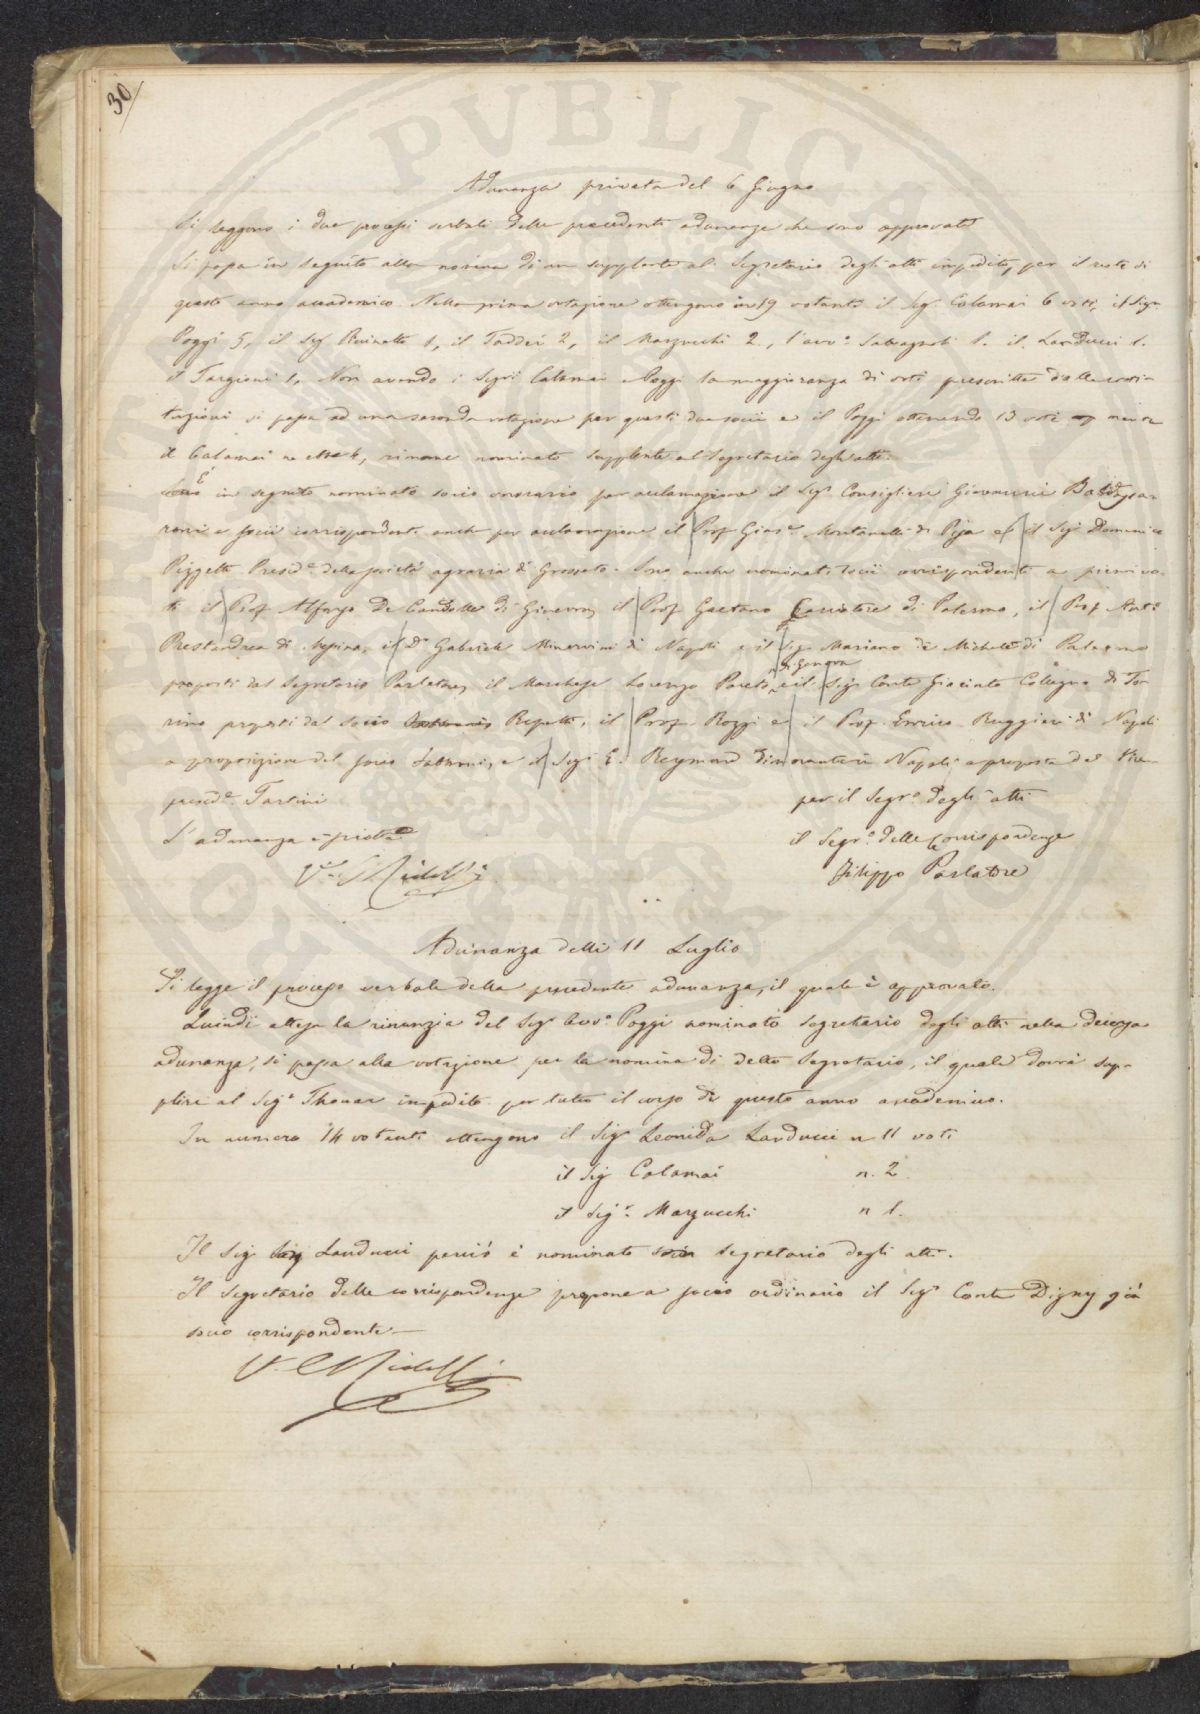 30
Adunanza privata del 6 Giugno
Si leggono i due processi verbali delle precedenti adunanze che sono approvati
Si passa in seguito alla nomina di un supplente al Segretario degli atti impedito, per il resto di
questo anno accademico. Nella prima votazione ottengono in 19 votanti il Sigr. Calamai 6 voti, il Sigr.
Poggi 5, il Sigr 1, il Taddei 2, il Marzucchi 2, l'avvo. Salvagnoli 1. il Landucci 1.
il Targioni 1. Non avendo i Sigri Calamai e Poggi la maggioranza di voti prescritta dalle costi-
tuzioni si passa ad una seconda votazione per questi due socii e il Poggi ottenendo 13 voti mentre
il Calamai ne ebbe 6, rimane nominato supplente al Segretario degli atti.
È in seguito nominato socio onorario per acclamazione il Sigr Consigliere Giovanni Baldas-
roni e socii corrispondenti anche per acclamazione il Prof Gius.e Montanelli di Pisa e il Sigr Domenico
Pizzetti Presid.e della società agraria di Grosseto. Sono anche nominati socii corrispondenti a pieni vo-
ti il Prof Alfonso De Candolle di Ginevra, il Prof Gaetano Cacciatore di Palermo, il Prof Anto
Prestandrea di Messina, il Dr Gabriele Minervini di Napoli e il Sigr Mariano di Michele di Palermo
proposti dal Segretario Parlatore, il Marchese Lorenzo Pareto di Genova e il Sigr Conte Giacinto Collegno di To-
rino proposti dal socio Repetti, il Prof. Rozzi e il Prof. Enrico Ruggieri di Napoli
a proposizione del socio, e il Sigr E. Reymond dimorante in Napoli a proposta del Vice-
presid.e Tartini
per il Segr.o degli atti
L'adunanza è sciolta
il Segr.o delle Corrispondenze
V. C. Ridolfi
Filippo Parlatore
Adunanza delli 11 Luglio
Si legge il processo verbale della precedente adunanza, il quale è approvato.
Quindi attesa la rinunzia del Sigr avvo. Poggi nominato segretario degli atti nella decorsa
adunanza, si passa alla votazione per la nomina di detto Segretario, il quale dovrà sup-
plire al Sigr Thouar impedito per tutto il corso di questo anno accademico.
In numero 14 votanti ottengono il Sigr Leonida Landucci n 11 voti
il Sigr Calamai n. 2.
il Sigr. Marzucchi n 1.
Il Sigr Landucci perciò è nominato segretario degli atti.
Il Segretario delle corrispondenze propone a socio ordinario il Sigr Conte Digny già
socio corrispondente.
V. C. Ridolfi